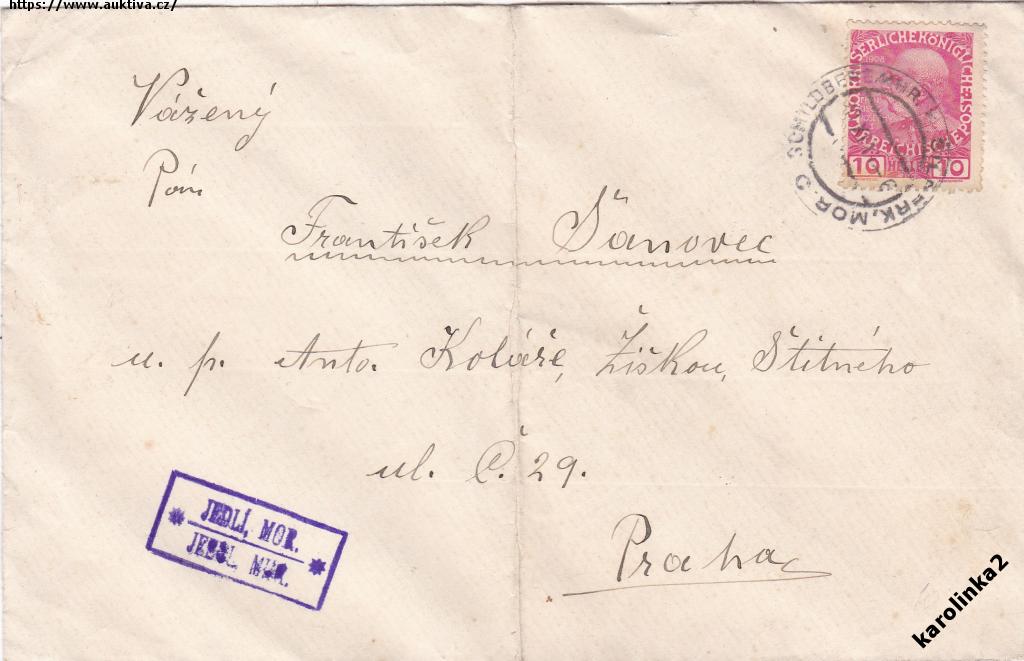 https://www.auktiva.cz/
Vážený
Pán
František Šánovec
u. p. Anto. Koláře, Žiškou, Štítného
ul. Č. 29.
Praha
JEDLÍ, MOR.
JEDL, MÄH.
SCHILDBERG, MÄHR.
ŠILPERK, MOR.
KAISERLICHE KÖNIGLICHE
ÖSTERREICHISCHE POST
1908
10 HELLER 10
karolinka2